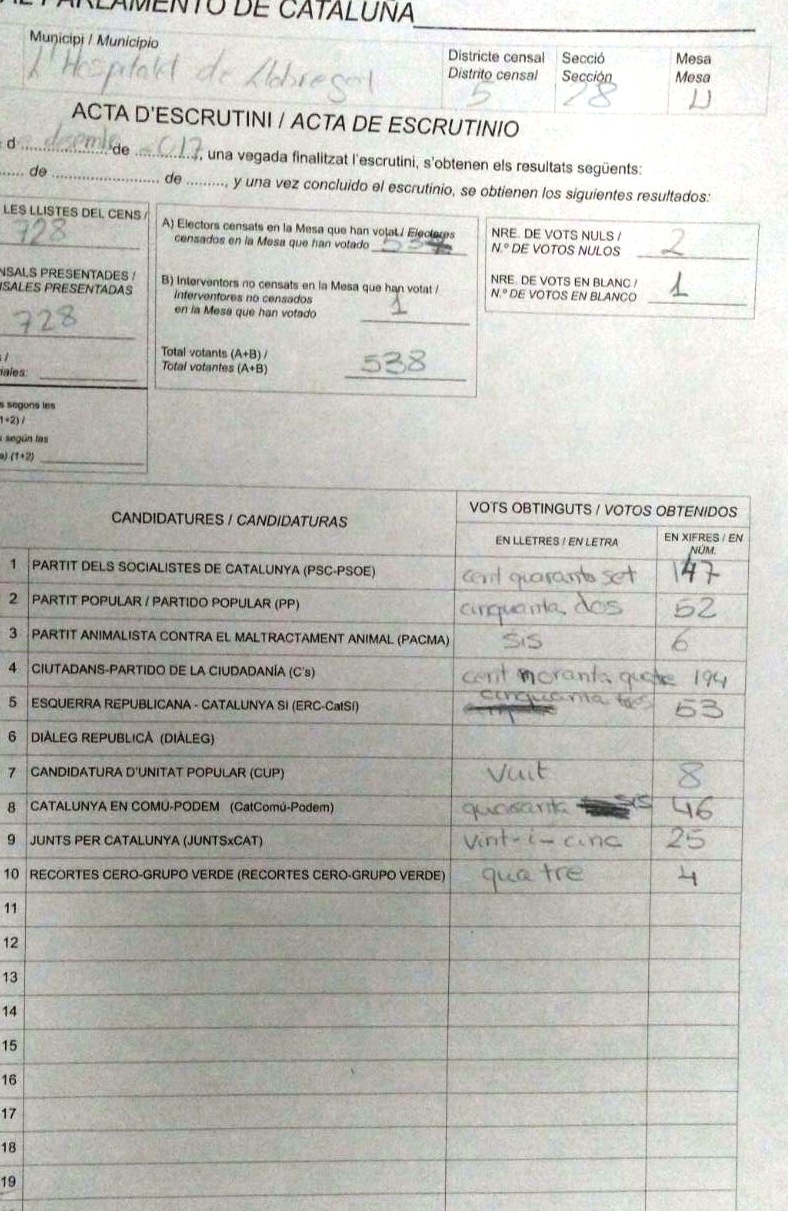 PARLAMENTO DE CATALUÑA
Municipi / Municipio
L'Hospitalet de Llobregat
Districte censal
Distrito censal
5
Secció
Sección
28
Mesa
Mesa
U
ACTA D'ESCRUTINI / ACTA DE ESCRUTINIO
d ... de ..., una vegada finalitzat l'escrutini, s'obtenen els resultats següents:
... de ... de ..., y una vez concluido el escrutinio, se obtienen los siguientes resultados:
LES LLISTES DEL CENS /
728
PRESENTADES /
PRESENTADAS
728
segons les
1+2) /
según las
(1+2)
A) Electors censats en la Mesa que han votat / Electores
censados en la Mesa que han votado 537
B) Interventors no censats en la Mesa que han votat /
Interventores no censados
en la Mesa que han votado 1
Total votants (A+B) /
Total votantes (A+B) 538
NRE. DE VOTS NULS /
N.º DE VOTOS NULOS 2
NRE. DE VOTS EN BLANC /
N.º DE VOTOS EN BLANCO 1
CANDIDATURES / CANDIDATURAS
VOTS OBTINGUTS / VOTOS OBTENIDOS
EN LLETRES / EN LETRA
EN XIFRES / EN
NÚM.
1 PARTIT DELS SOCIALISTES DE CATALUNYA (PSC-PSOE) cent quaranta set 147
2 PARTIT POPULAR / PARTIDO POPULAR (PP) cinquanta dos 52
3 PARTIT ANIMALISTA CONTRA EL MALTRACTAMENT ANIMAL (PACMA) sis 6
4 CIUTADANS-PARTIDO DE LA CIUDADANÍA (C's) cent noranta quatre 194
5 ESQUERRA REPUBLICANA - CATALUNYA SI (ERC-CatSí) cinquanta tres 53
6 DIÀLEG REPUBLICÀ (DIÀLEG)
7 CANDIDATURA D'UNITAT POPULAR (CUP) Vuit 8
8 CATALUNYA EN COMÚ-PODEM (CatComú-Podem) quaranta sis 46
9 JUNTS PER CATALUNYA (JUNTSxCAT) Vint-i-cinc 25
10 RECORTES CERO-GRUPO VERDE (RECORTES CERO-GRUPO VERDE) quatre 4
11
12
13
14
15
16
17
18
19